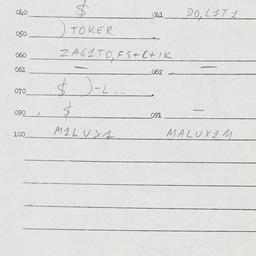 040 $ 041 DO, L1T1
050 ) TOKER
060 ZAG1TO, FS+C+1K
061 — 062 —
070 $ )-L...
090 $ 091 —
100 M1LUX1 MALUX1M